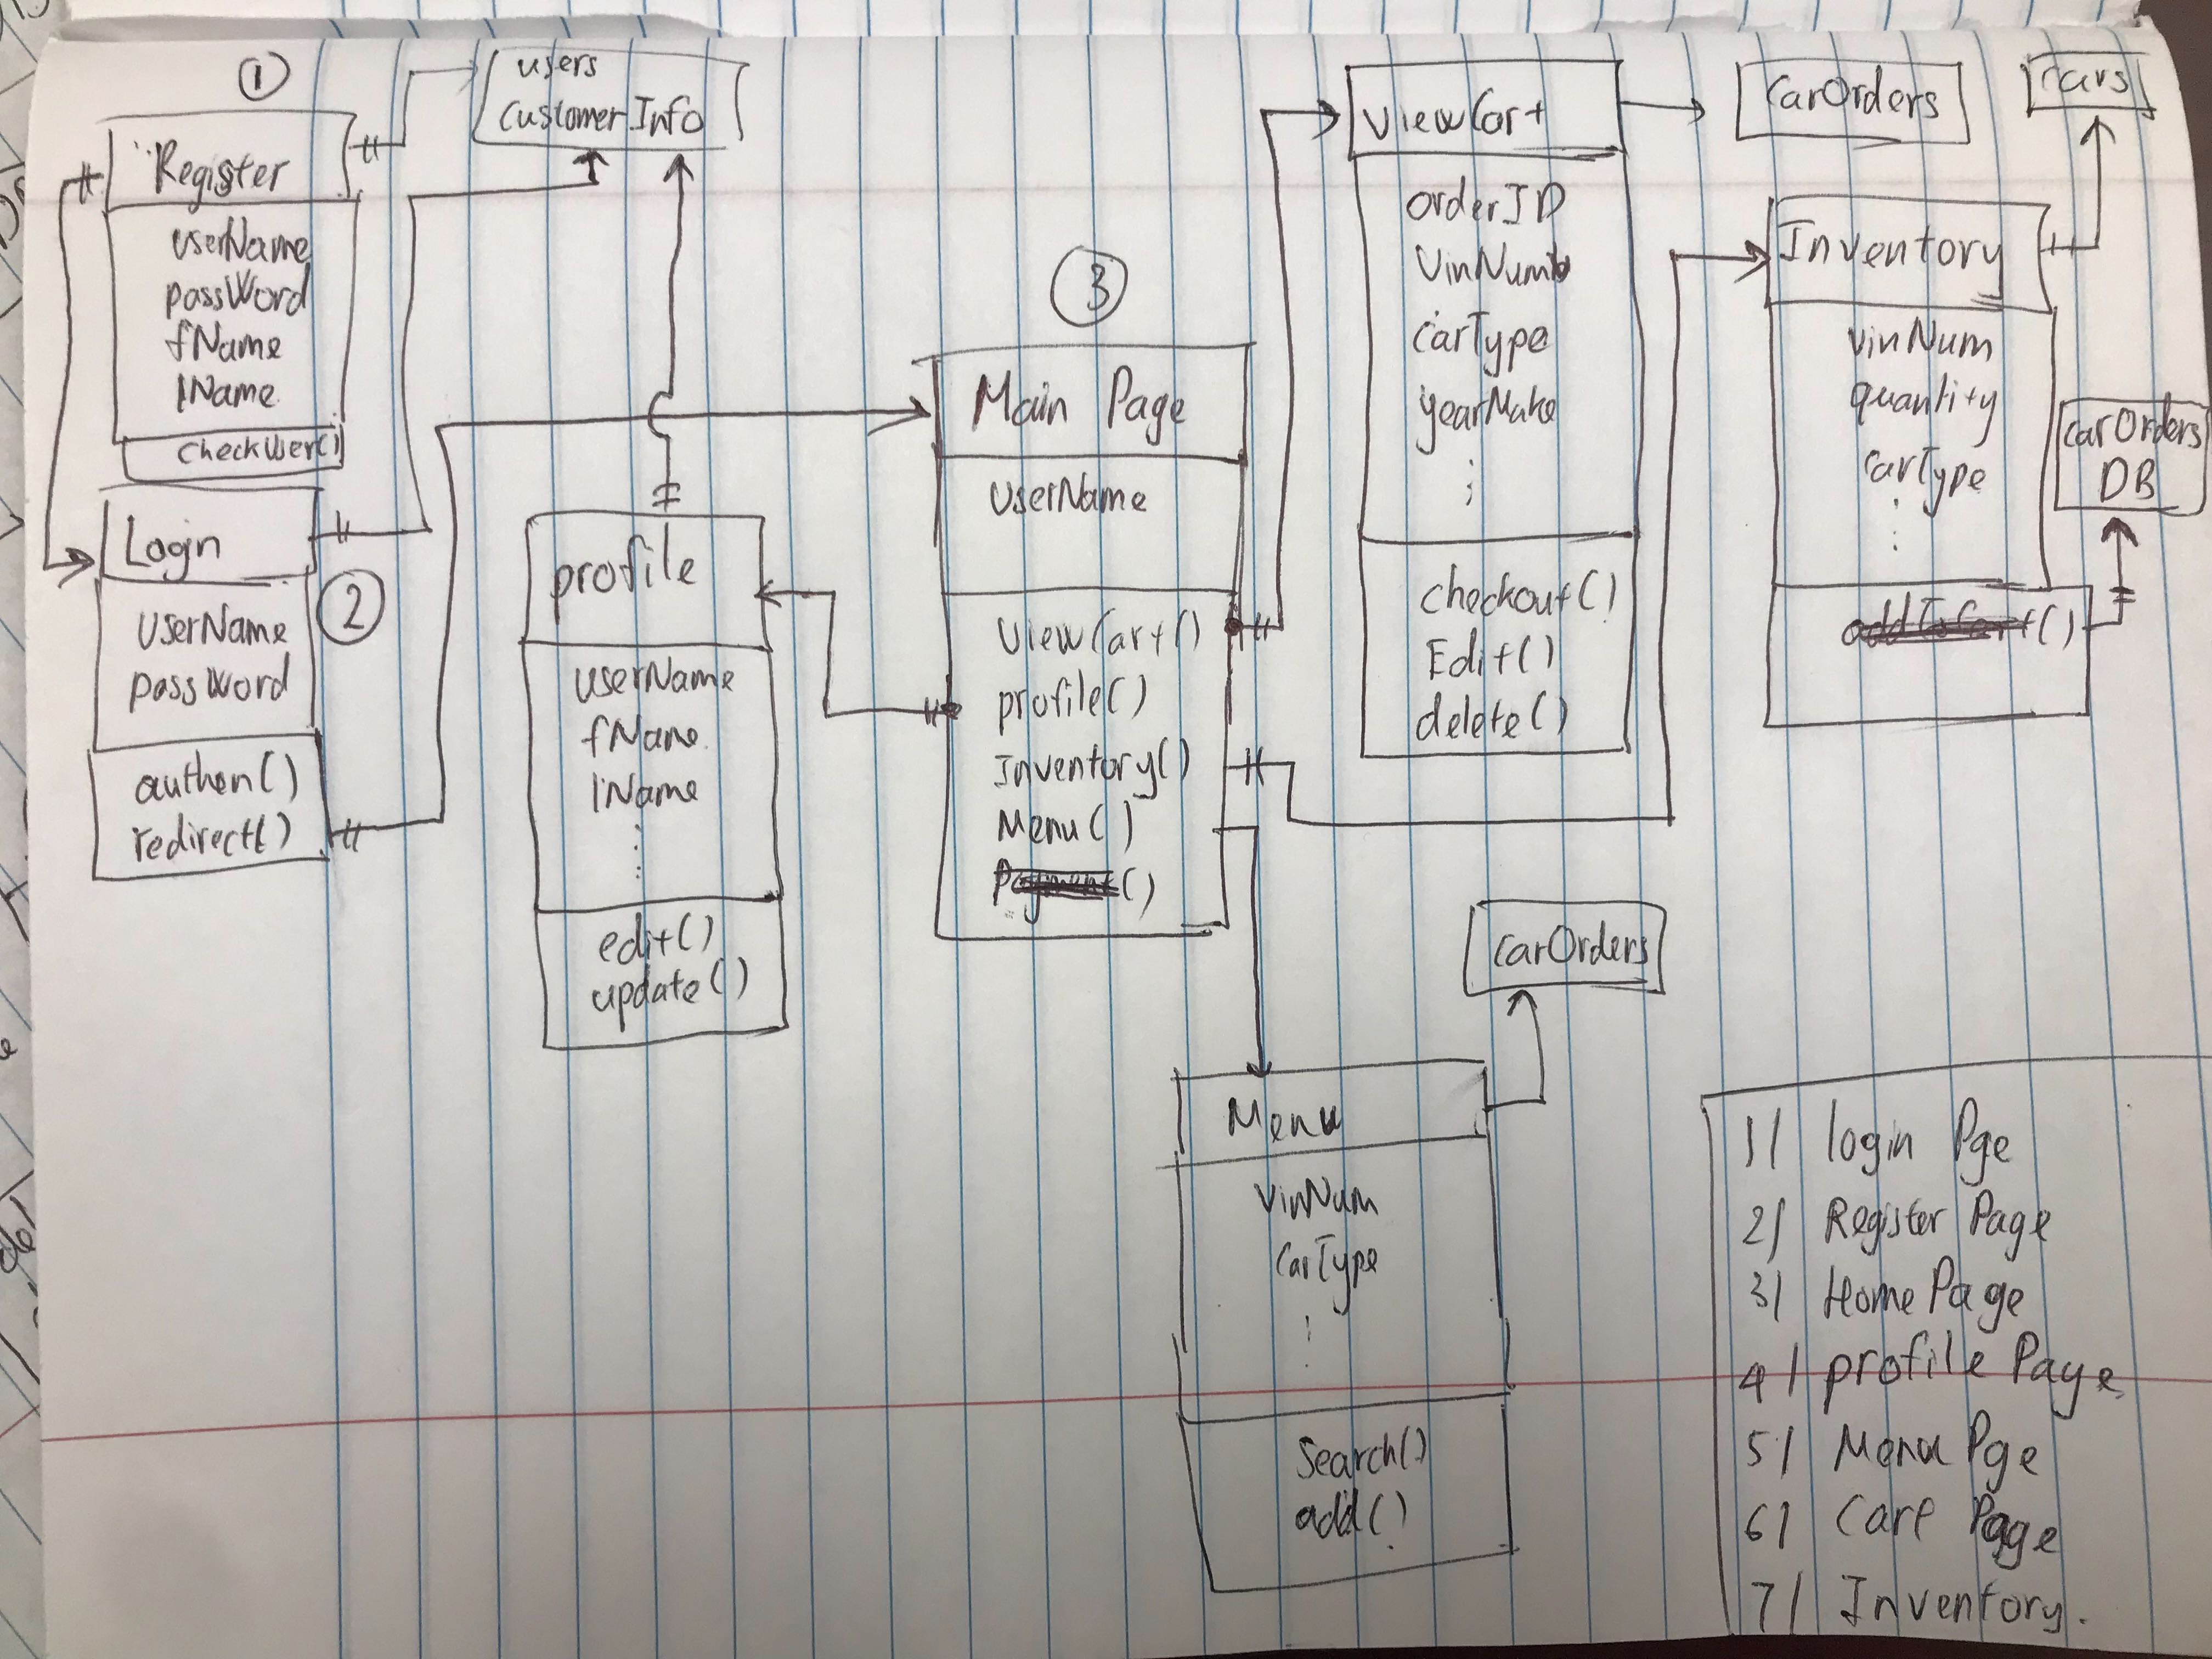 1
users
customerInfo
Register
userName
passWord
fName
lName
checkUser()
Login
2
UserName
passWord
authen()
redirect()
profile
userName
fName
lName
edit()
update()
3
Main Page
UserName
ViewCart()
profile()
Inventory()
Menu()
Payment()
ViewCart
orderID
VinNumb
carType
yearMake
checkout()
Edit()
delete()
CarOrders
cars
Inventory
vinNum
quantity
carType
addToCart()
carOrders
DB
carOrders
Menu
VinNum
CarType
Search()
add()
1/ login Pge
2/ Register Page
3/ Home Page
4/ profile Page
5/ Menu Pge
6/ Page
7/ Inventory.